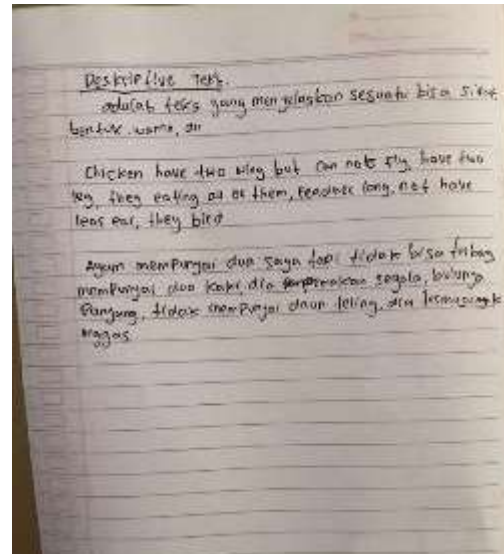 Deskriptive Teks.
adalah teks yang menjelaskan sesuatu bisa sifat
bentuk. warna, dll
Chicken have two wing but can not fly, have two
leg, they eating all of them, feadher long, not have
leas ear, they bird
Ayam mempunyai dua sayap tapi tidak bisa terbang
mempunyai dua kaki dia pemakan segala, bulunya
Panjang, tidak mempunyai daun teling, dia termasuk